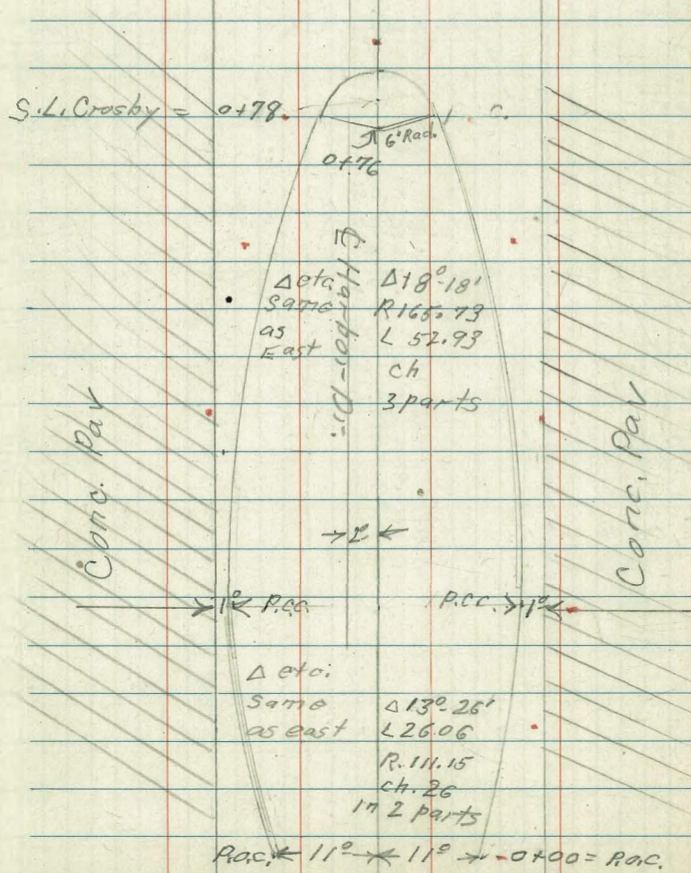 S.L. Crosby = 0+78
c.
6' Rad.
0+76
℄ Harbor Dr.
Δ etc.
same
as
East
Δ 18°-18'
R 165.73
L 52.93
ch
3 parts
Conc. Pav
Conc. Pav
2°
1° P.C.C.
P.C.C. 1°
Δ etc.
same
as east
Δ 13°-26'
L 26.06
R. 111.15
ch. 26
in 2 parts
P.O.C. 11° 11° 0+00 = P.O.C.